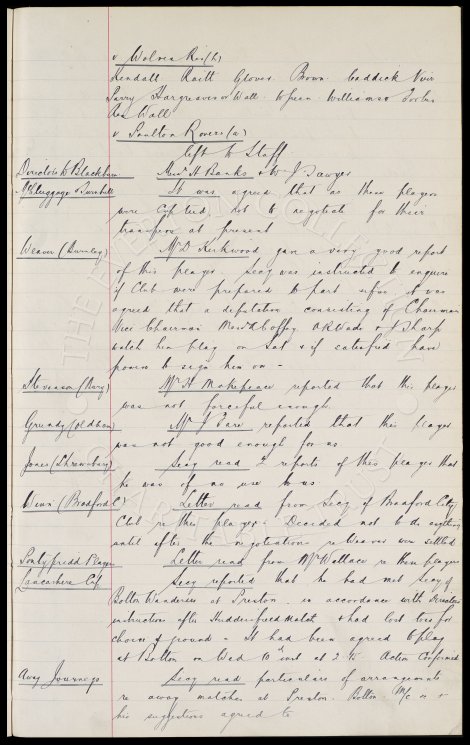 v Wolves Res (h)
Kendall Raitt Glover Brown Caddick Virr
Parry Hargreaves or Wall Williamson Forbes
Res Wall
v Poulton Rovers (a)
left to Staff
Directors to Blackburn Messrs A Banks & W J Sawyer
& Turnbull It was agreed that as these players
were Cup tied, not to negotiate for their
transfers at present
Weaver (Burnley) Mr D Kirkwood gave a very good report
of this player. Secy was instructed to enquire
if Club were prepared to part & if so it was
agreed that a deputation consisting of Chairman
Vice Chairman Messrs Coffey A R Wade & J Sharp
watch him play on Sat & if satisfied have
power to sign him on -
Stevenson (Bury) Mr H Makepeace reported that this player
was not forceful enough.
Grundy (Oldham) Mr J Fare reported that this player
was not good enough for us
Jones (Shrewsbury) Secy read 2 reports of this player that
he was of no use to us
Wenn (Bradford C) Letter read from Secy of Bradford City
Club re this player. Decided not to do anything
until after the negotiations re Weaver were settled
Pontypridd Player Letter read from Mr Wallace re these players
Lancashire Cup Secy reported that he had met Secy of
Bolton Wanderers at Preston in accordance with Directors
instruction after Huddersfield match & had lost toss for
choice of ground - It had been agreed to play
at Bolton on Wed 10th inst at 2.45 Action Confirmed
Away Journeys Secy read particulars of arrangements
re away matches at Preston. Bolton M/c &
his suggestions agreed to
THE EVERTON COLLECTION
CHARITABLE TRUST